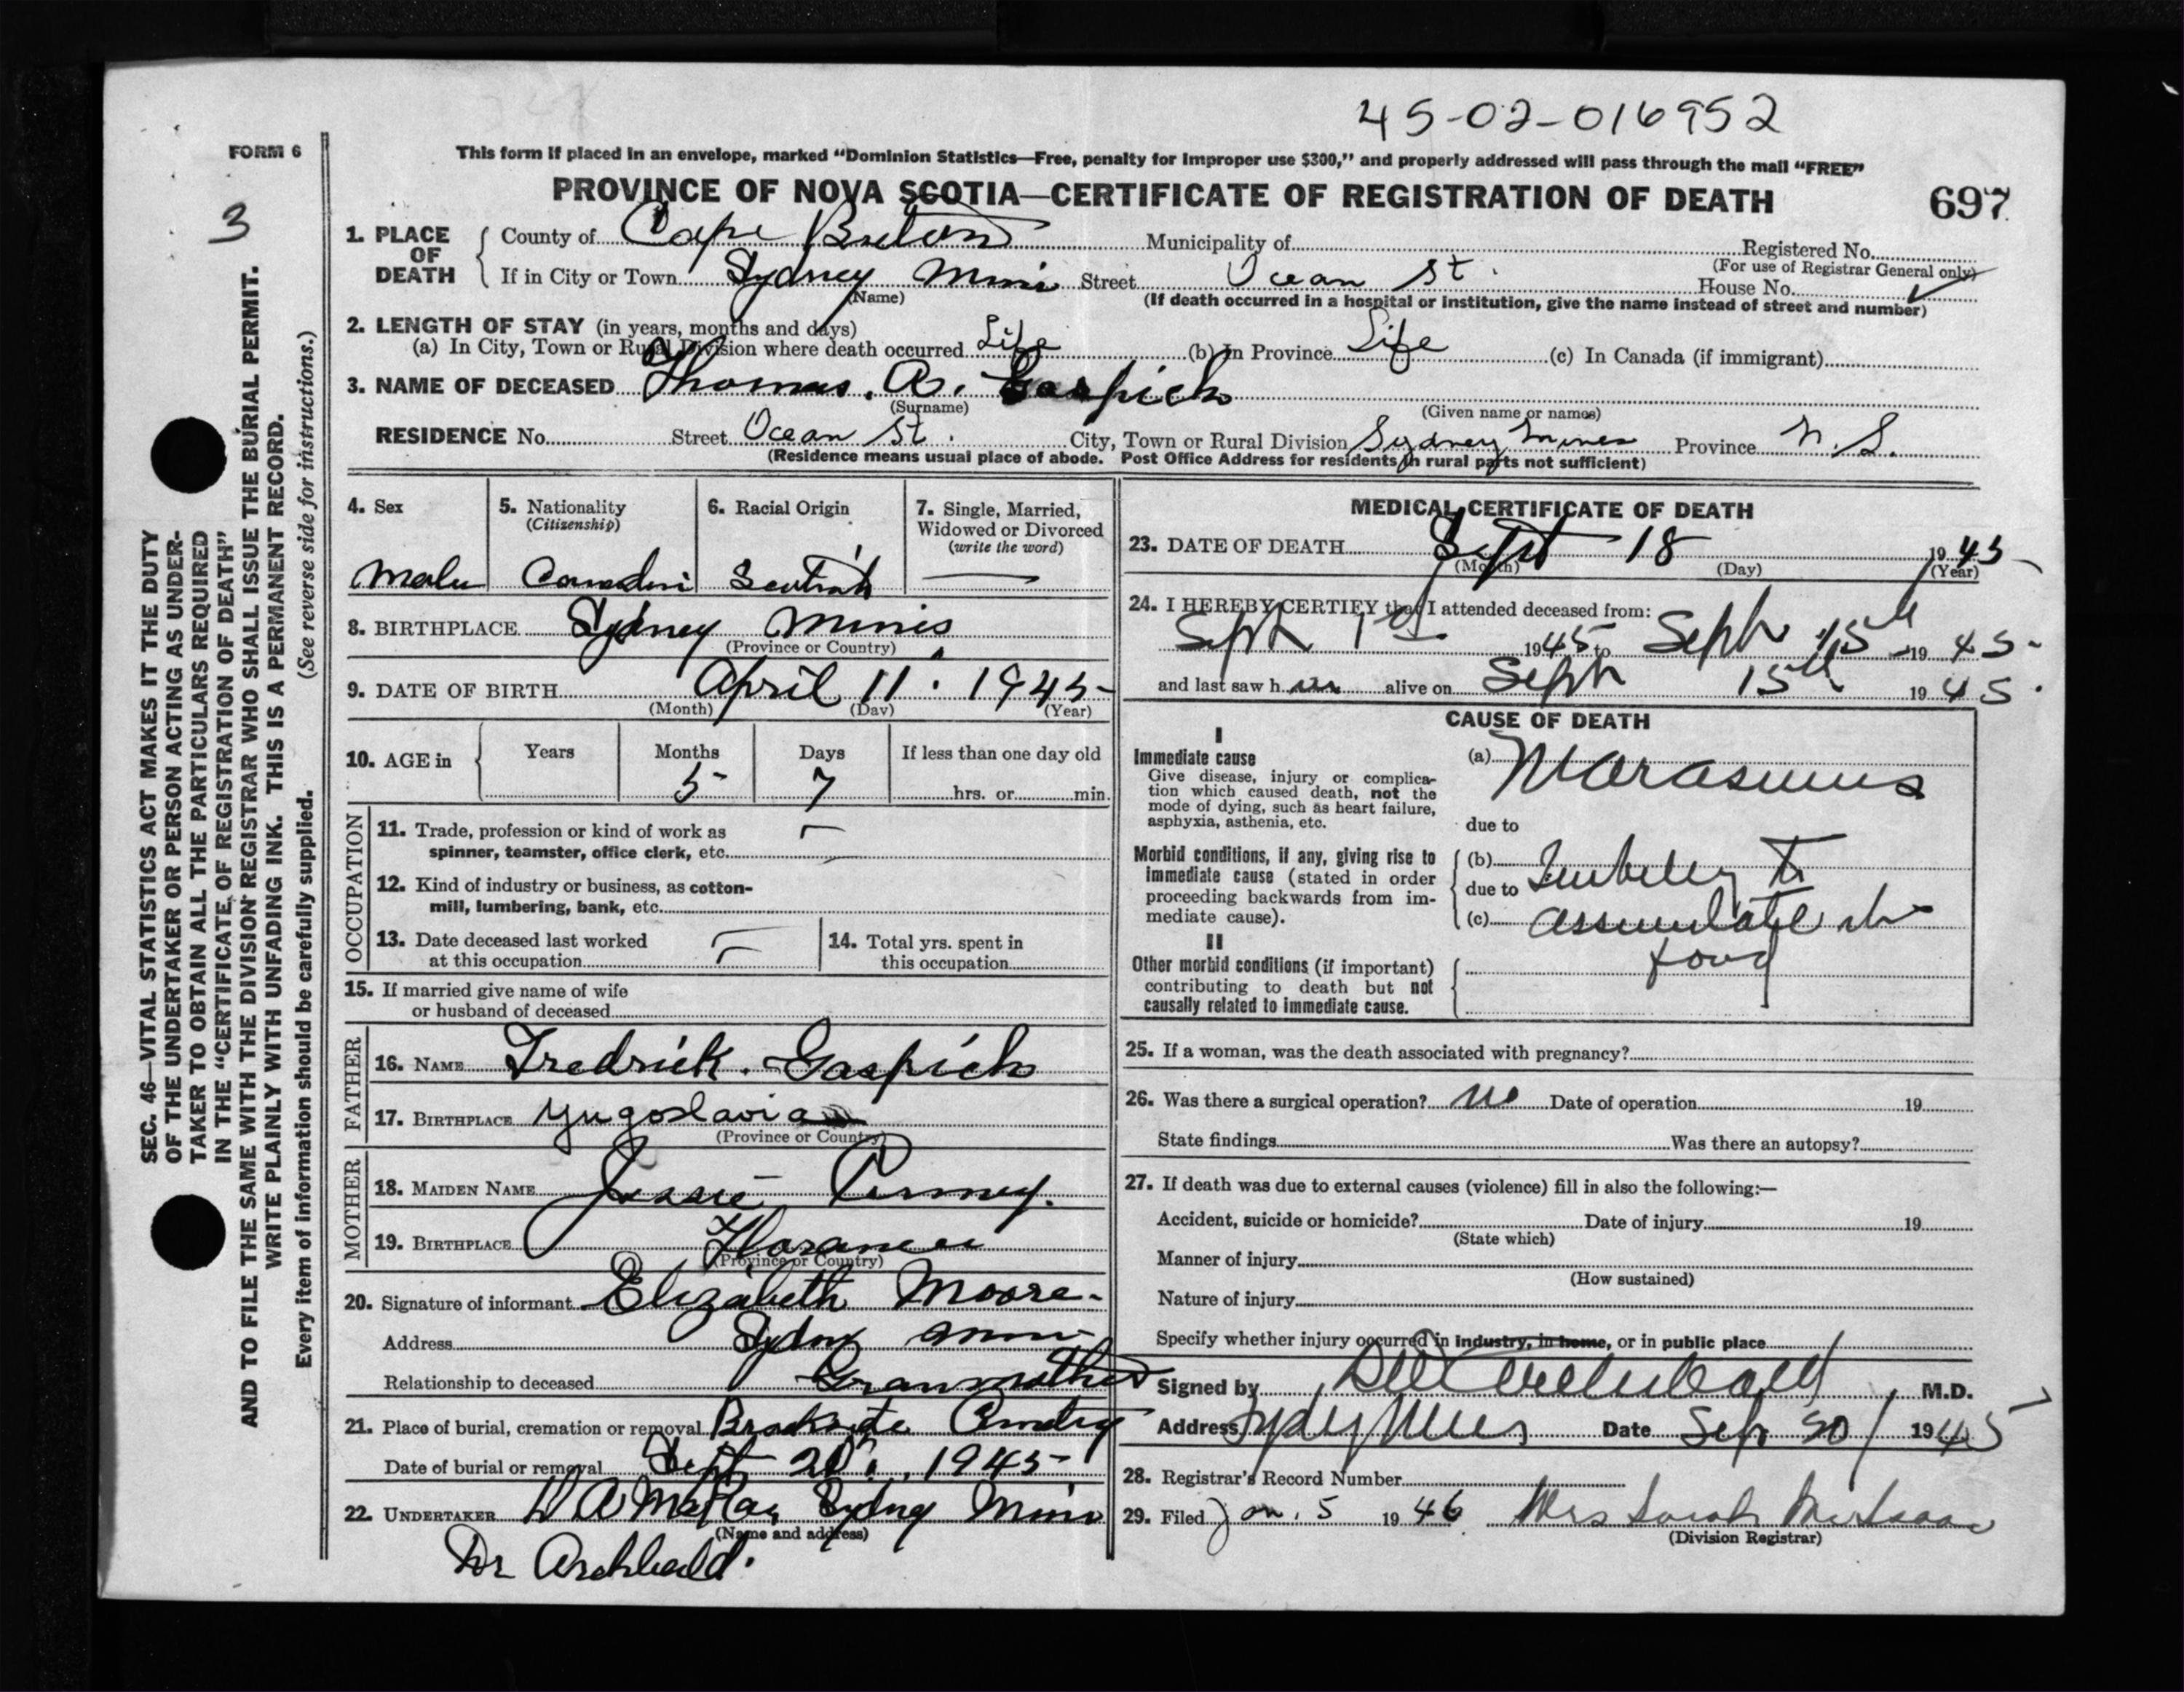 45-02-016952
FORM 6
This form if placed in an envelope, marked "Dominion Statistics—Free, penalty for improper use $300," and properly addressed will pass through the mail "FREE"
PROVINCE OF NOVA SCOTIA—CERTIFICATE OF REGISTRATION OF DEATH
697
3
SEC. 46—VITAL STATISTICS ACT MAKES IT THE DUTY
OF THE UNDERTAKER OR PERSON ACTING AS UNDER-
TAKER TO OBTAIN ALL THE PARTICULARS REQUIRED
IN THE "CERTIFICATE OF REGISTRATION OF DEATH"
AND TO FILE THE SAME WITH THE DIVISION REGISTRAR WHO SHALL ISSUE THE BURIAL PERMIT.
WRITE PLAINLY WITH UNFADING INK. THIS IS A PERMANENT RECORD.
Every item of information should be carefully supplied. (See reverse side for instructions.)
1. PLACE OF DEATH
County of Cape Breton Municipality of Registered No.
(For use of Registrar General only)
If in City or Town Sydney Mines Street Ocean St. House No.
(Name) (If death occurred in a hospital or institution, give the name instead of street and number)
2. LENGTH OF STAY (in years, months and days)
(a) In City, Town or Rural Division where death occurred Life (b) In Province Life (c) In Canada (if immigrant)
3. NAME OF DECEASED Thomas. A. Gaspich
(Surname) (Given name or names)
RESIDENCE No. Street Ocean St. City, Town or Rural Division Sydney Mines Province N. S.
(Residence means usual place of abode. Post Office Address for residents in rural parts not sufficient)
4. Sex
Male
5. Nationality
(Citizenship)
6. Racial Origin
7. Single, Married,
Widowed or Divorced
(write the word)
8. BIRTHPLACE Sydney Mines
(Province or Country)
9. DATE OF BIRTH April 11. 1945
(Month) (Day) (Year)
10. AGE in
Years
Months 5
Days 7
If less than one day old
hrs. or min.
OCCUPATION
11. Trade, profession or kind of work as
spinner, teamster, office clerk, etc.
12. Kind of industry or business, as cotton-
mill, lumbering, bank, etc.
13. Date deceased last worked
at this occupation
14. Total yrs. spent in
this occupation
15. If married give name of wife
or husband of deceased
FATHER
16. NAME Fredrick. Gaspich
17. BIRTHPLACE Yugoslavia
(Province or Country)
MOTHER
18. MAIDEN NAME Jessie
19. BIRTHPLACE Florance
(Province or Country)
20. Signature of informant Elizabeth Moore
Address Sydney Mines
Relationship to deceased Granmother
21. Place of burial, cremation or removal Brookside Cemetry
Date of burial or removal Sept 20. 1945
22. UNDERTAKER Sydney Mines
(Name and address)
Dr Archibald.
MEDICAL CERTIFICATE OF DEATH
23. DATE OF DEATH Sept 18 1945
(Month) (Day) (Year)
24. I HEREBY CERTIFY that I attended deceased from:
Sept 1st 1945 to Sept 15th 1945
and last saw him alive on Sept 15th 1945.
CAUSE OF DEATH
I
Immediate cause
Give disease, injury or complica-
tion which caused death, not the
mode of dying, such as heart failure,
asphyxia, asthenia, etc.
(a) Marasmus
due to
Morbid conditions, if any, giving rise to
immediate cause (stated in order
proceeding backwards from im-
mediate cause).
(b) to
due to
(c) assimilate
food
II
Other morbid conditions (if important)
contributing to death but not
causally related to immediate cause.
25. If a woman, was the death associated with pregnancy?
26. Was there a surgical operation? no Date of operation 19
State findings Was there an autopsy?
27. If death was due to external causes (violence) fill in also the following:—
Accident, suicide or homicide? Date of injury 19
(State which)
Manner of injury
(How sustained)
Nature of injury
Specify whether injury occurred in industry, in home, or in public place
Signed by Archibald M.D.
Address Sydney Mines Date Sept 20 1945
28. Registrar's Record Number
29. Filed Jan. 5 1946 Mrs Sarah McIsaac
(Division Registrar)